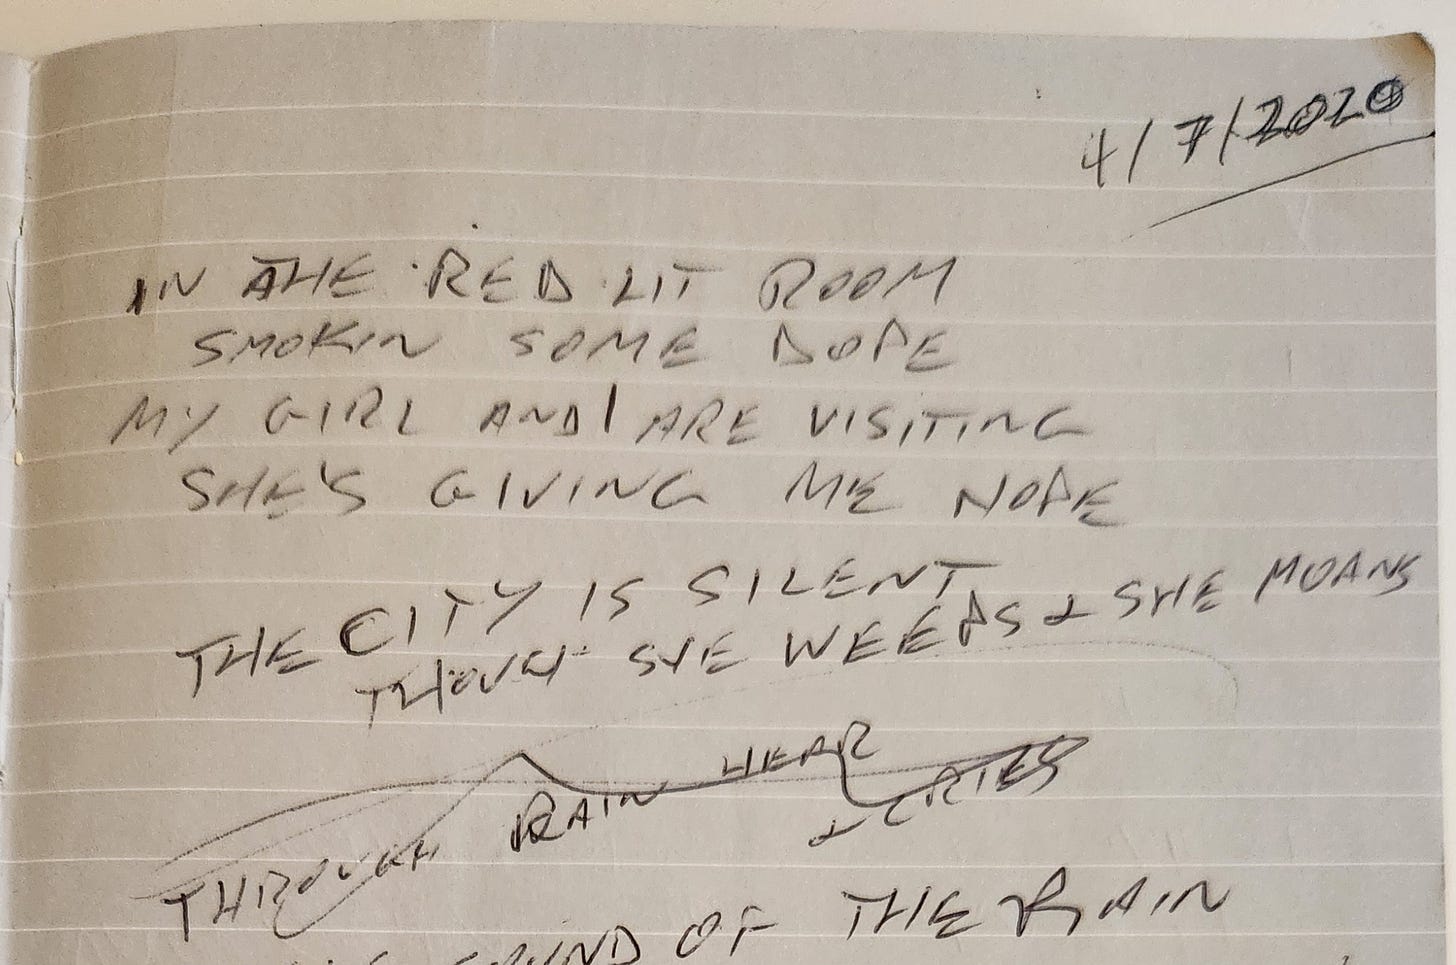 4/7/2020
IN THE RED LIT ROOM
SMOKIN SOME DOPE
MY GIRL AND I ARE VISITING
SHE'S GIVING ME NOPE
THE CITY IS SILENT
THOUGH SHE WEEPS & SHE MOANS
THROUGH RAIN HEAR
& CRIES
SOUND OF THE RAIN